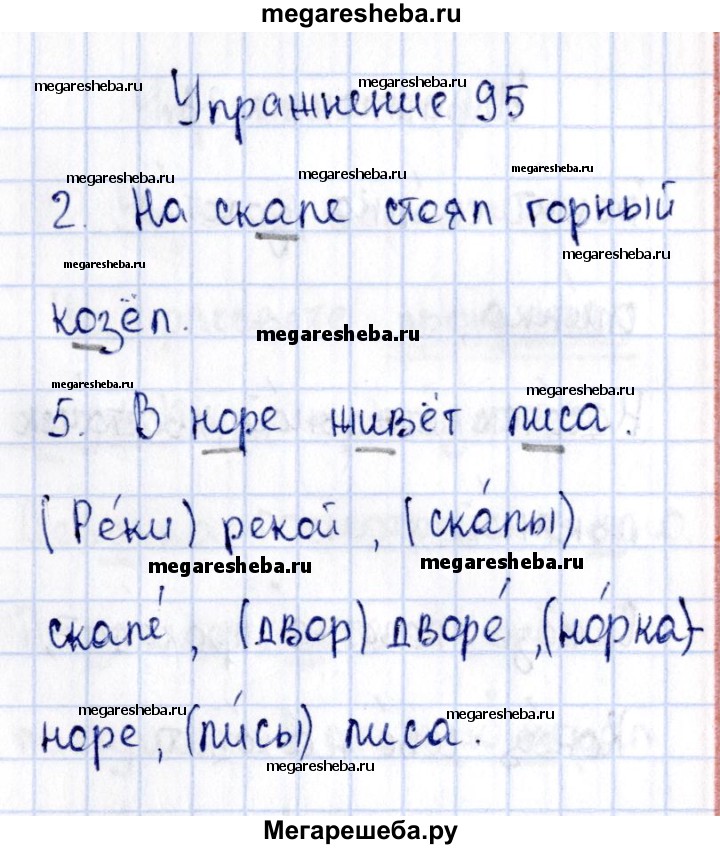 megaresheba.ru
megaresheba.ru megaresheba.ru
Упражнение 95
megaresheba.ru megaresheba.ru megaresheba.ru
2. На скале стоял горный
megaresheba.ru megaresheba.ru
козёл. megaresheba.ru
megaresheba.ru megaresheba.ru
5. В норе живёт лиса.
(Ре́ки) рекой, (ска́лы)
megaresheba.ru megaresheba.ru
скале́, (двор) дворе́, (но́рка)-
megaresheba.ru megaresheba.ru
норе, (ли́сы) лиса.
megaresheba.ru
Мегарешеба.ру